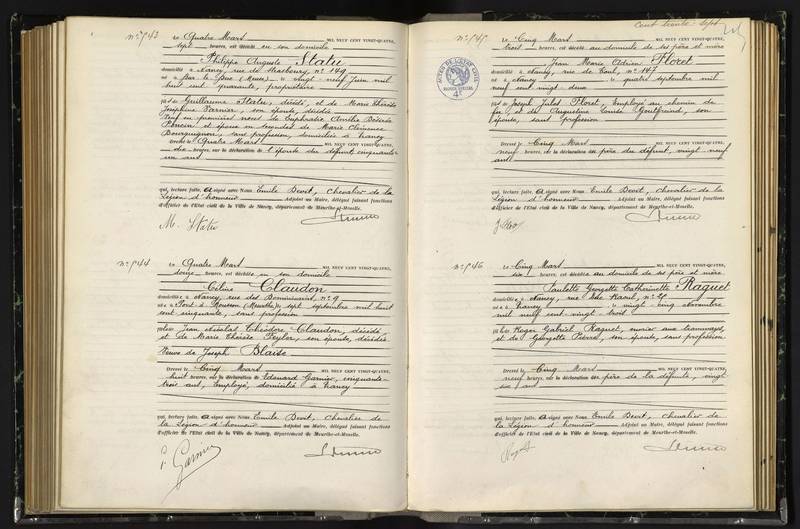 N° 743
Le Quatre Mars MIL NEUF CENT VINGT-QUATRE,
sept heures, est décédé en son domicile
Philippe Auguste Statu
domicilié à Nancy, rue de Strasbourg, n° 149
né à Bar-le-Duc (Meuse), le vingt-neuf Juin mil
huit cent quarante, propriétaire
fils de Guillaume Statu, décédé, et de Marie Thérèse
Joséphine Varnier, son épouse, décédée
Veuf en premières noces de Euphrasie Désirée
et époux en secondes de Marie Clémence
Bourguignon, sans profession, domiciliée à Nancy
Dressé le Quatre Mars MIL NEUF CENT VINGT-QUATRE,
dix heures, sur la déclaration de l'épouse du défunt, cinquante-
un ans
qui, lecture faite, a signé avec Nous Emile Devit, Chevalier de la
Légion d'honneur Adjoint au Maire, délégué faisant fonctions
d'officier de l'Etat civil de la Ville de Nancy, département de Meurthe-et-Moselle.
M. Statu
N° 744
Le Quatre Mars MIL NEUF CENT VINGT-QUATRE,
douze heures, est décédée en son domicile
Céline Claudon
domiciliée à Nancy, rue des Dominicains, n° 9
née à Pont à Mousson (Meurthe), le sept septembre mil huit
cent cinquante, sans profession
fille de Jean Nicolas Théodore Claudon, décédé,
et de Marie Thérèse Feyler, son épouse, décédée
Veuve de Joseph Blaise
Dressé le Cinq Mars MIL NEUF CENT VINGT-QUATRE,
huit heures, sur la déclaration de Edouard Garnier, cinquante-
trois ans, Employé, domicilié à Nancy
qui, lecture faite, a signé avec Nous Emile Devit, Chevalier de
la Légion d'honneur Adjoint au Maire, délégué faisant fonctions
d'officier de l'Etat civil de la Ville de Nancy, département de Meurthe-et-Moselle.
Garnier
Cent trente-sept
N° 745
Le Cinq Mars MIL NEUF CENT VINGT-QUATRE,
trois heures, est décédé au domicile de ses père et mère
Jean Marie Adrien Floret
domicilié à Nancy, rue de Toul, n° 147
né à Nancy le quatre septembre mil
neuf cent vingt deux
fils de Joseph Jules Floret, Employé au chemin de
fer, et de Augustine Louise, son
épouse, sans profession
Dressé le Cinq Mars MIL NEUF CENT VINGT-QUATRE,
neuf heures, sur la déclaration du père du défunt, vingt neuf
ans
qui, lecture faite, a signé avec Nous Emile Devit, Chevalier de la
Légion d'honneur Adjoint au Maire, délégué faisant fonctions
d'officier de l'Etat civil de la Ville de Nancy, département de Meurthe-et-Moselle.
N° 746
Le Cinq Mars MIL NEUF CENT VINGT-QUATRE,
six heures, est décédée au domicile de ses père et mère
Paulette Georgette Catherinette Raguet
domiciliée à Nancy, rue
née à Nancy le vingt-cinq Novembre
mil neuf cent vingt trois
fille de Roger Gabriel Raguet, ouvrier aux tramways,
et de Georgette Pierre, son épouse, sans profession
Dressé le Cinq Mars MIL NEUF CENT VINGT-QUATRE,
neuf heures, sur la déclaration du père de la défunte, vingt
six ans
qui, lecture faite, a signé avec Nous Emile Devit, Chevalier de
la Légion d'honneur Adjoint au Maire, délégué faisant fonctions
d'officier de l'Etat civil de la Ville de Nancy, département de Meurthe-et-Moselle.